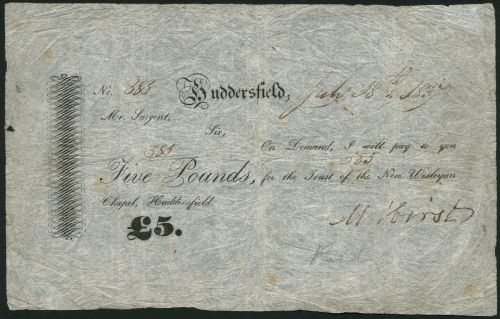 No. 385 Huddersfield, July 18th 183
Mr. Sargent,
Sir,
On Demand, I will pay to you
385 385
Five Pounds, for the Trust of the New Wesleyan
Chapel, Huddersfield.
£5.
M Hirst